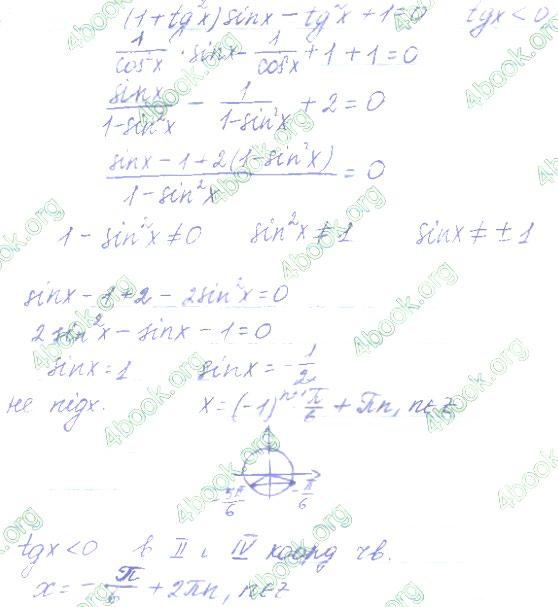 (1+tg²x)sinx-tg²x+1=0 tgx<0
1/cos²x · sinx - 1/cos²x + 1 + 1 = 0
sinx/1-sin²x - 1/1-sin²x + 2 = 0
sinx - 1 + 2(1-sin²x)/1-sin²x = 0
1 - sin²x ≠ 0 sin²x ≠ 1 sinx ≠ ± 1
sinx - 1 + 2 - 2sin²x = 0
2sin²x - sinx - 1 = 0
sinx = 1 sinx = - 1/2
не підх. x = (-1)ⁿ⁺¹ π/6 + πn, n∈z
- 5π/6 - π/6
tgx<0 в II і IV коорд чв.
x = - π/6 + 2πn, n∈z
4book.org